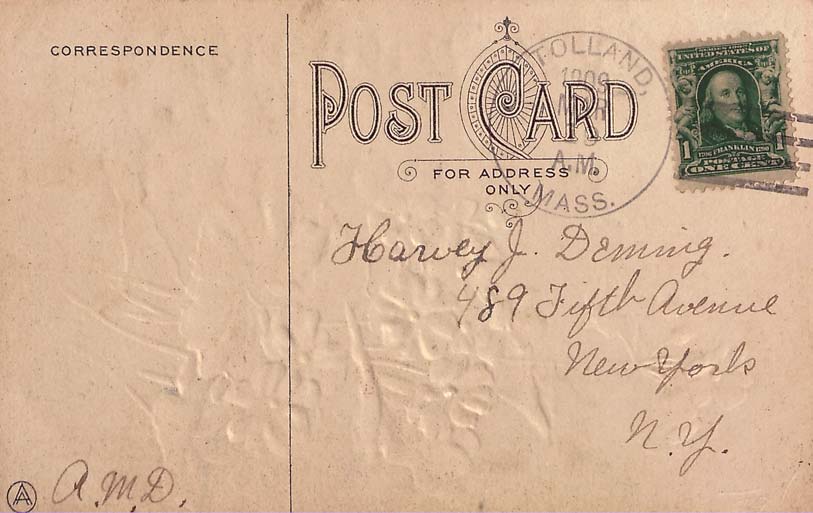 CORRESPONDENCE
POST CARD
FOR ADDRESS
ONLY
TOLLAND,
1909
A.M.
MASS.
SERIES 1902
UNITED STATES OF
AMERICA
1706 FRANKLIN 1790
1
POSTAGE
ONE CENT
Harvey J. Deming.
489 Fifth Avenue
New York
N.Y.
A.M.D.